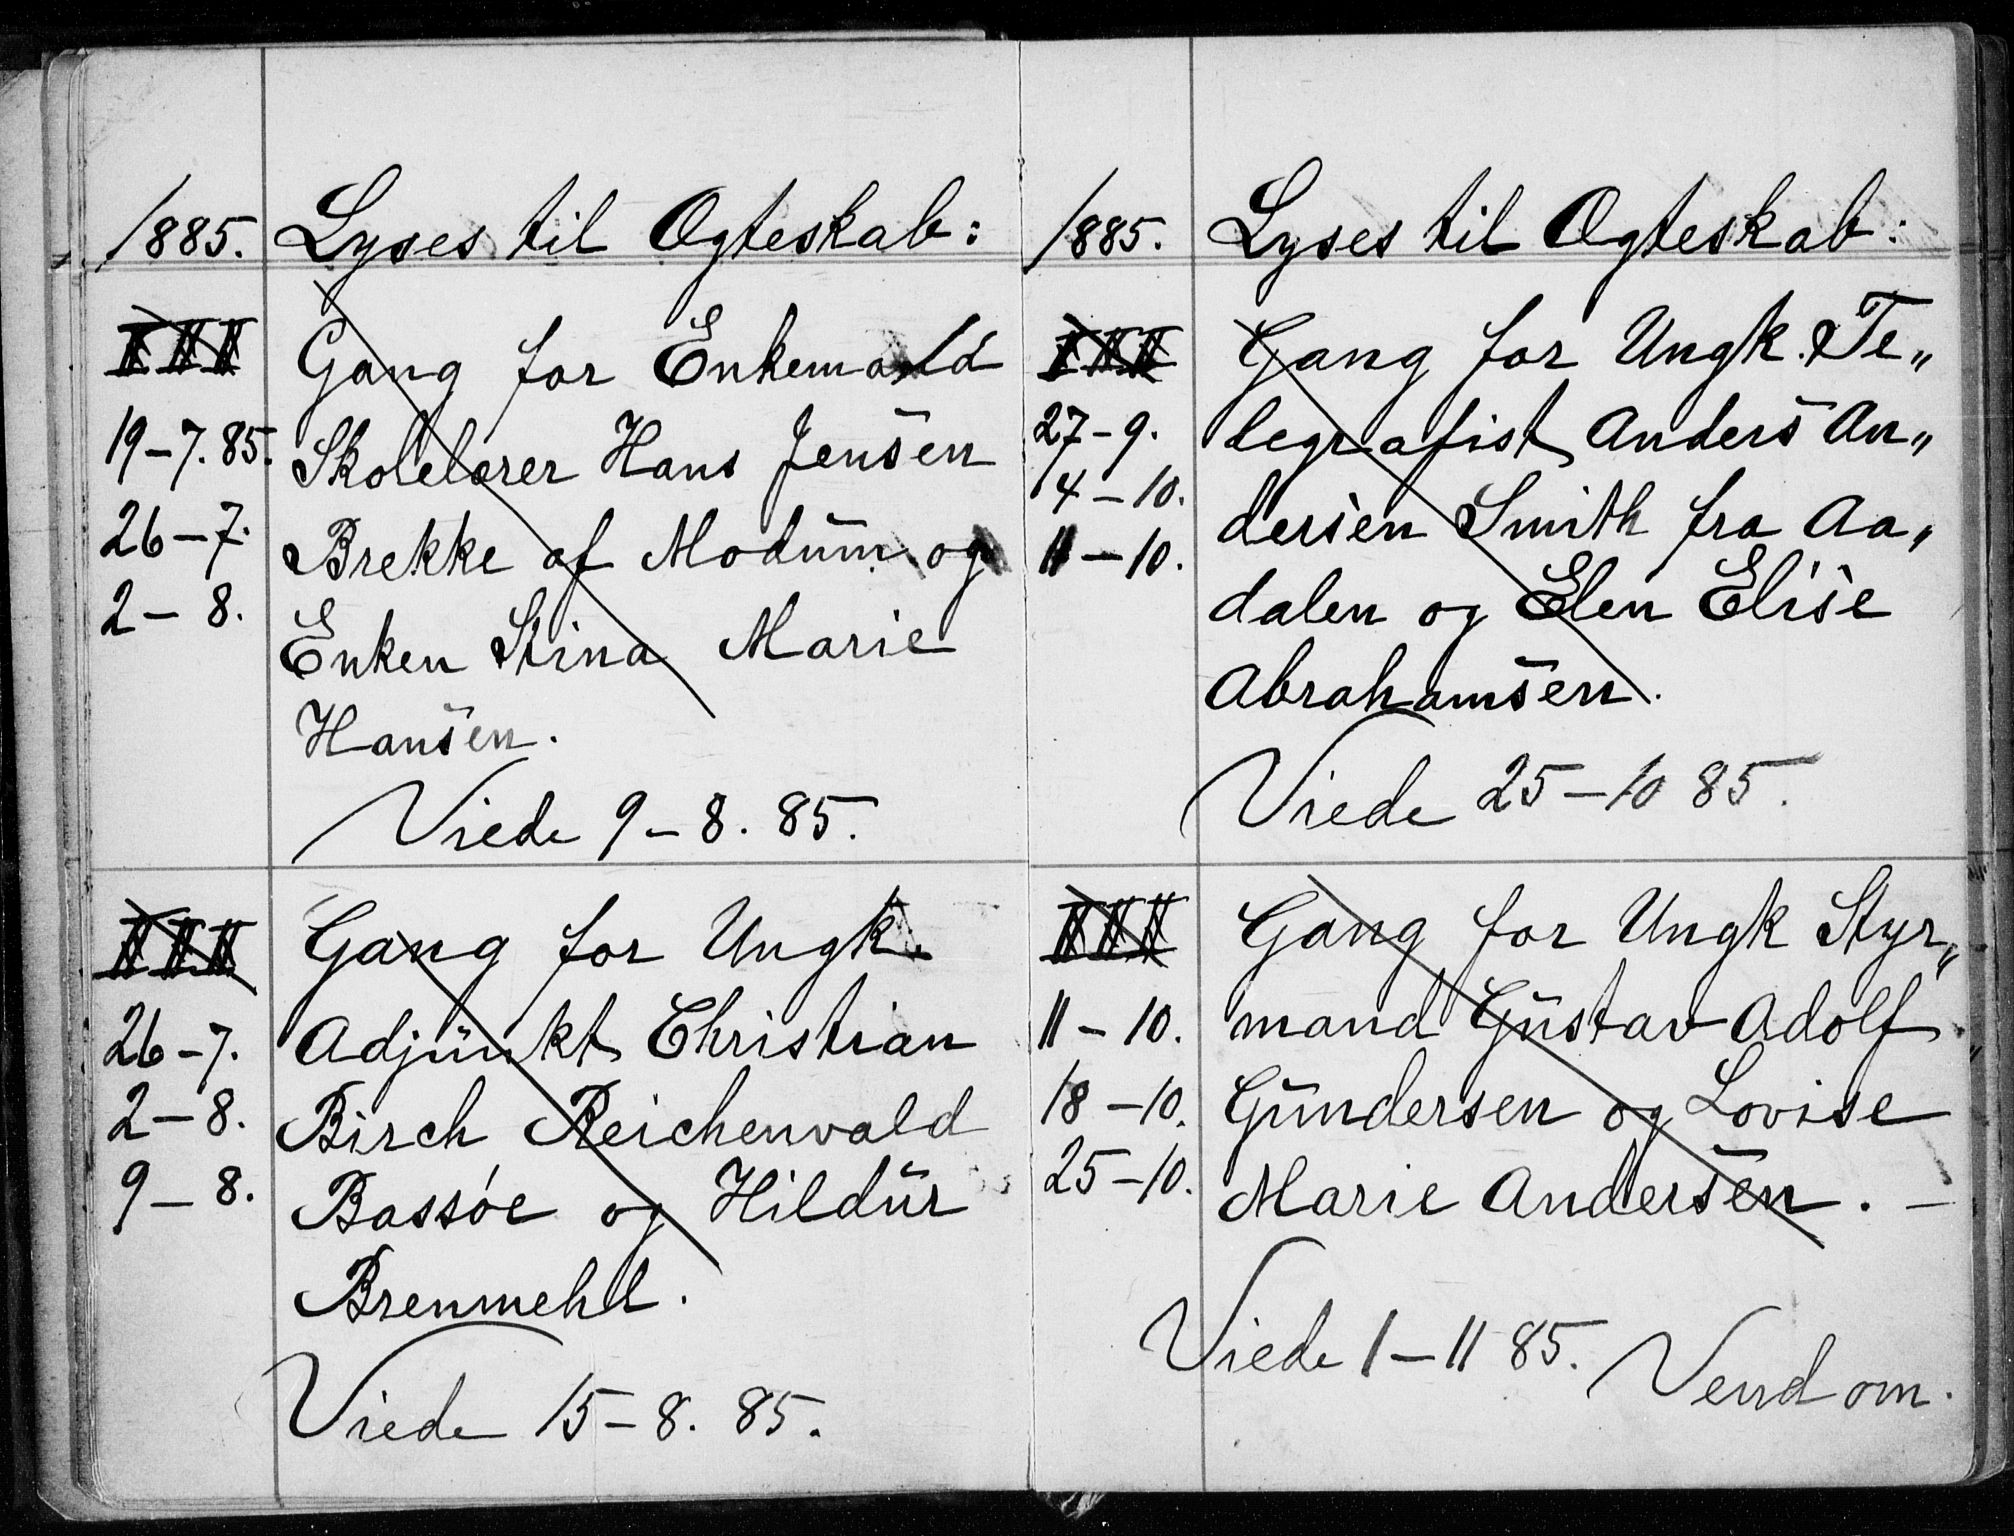 1885. Lyses til Ægteskab:
I II III Gang for Enkemand
19–7.85. Skolelærer Hans Jensen
26–7. Brekke af Modum og
2–8. Enken Stina Marie
Hansen.
Viede 9–8. 85.
I II III Gang for Ungk.
26–7. Adjunkt Christian
2–8. Birch Reichenwald
9–8. Bassøe og Hildur
Brenmehl.
Viede 15–8. 85.
1885. Lyses til Ægteskab:
I II III Gang for Ungk. Te„
27–9. legrafist Anders An„
4–10. dersen Smith fra Aa„
11–10. dalen og Elen Elise
Abrahamsen.
Viede 25–10 85.
I II III Gang for Ungk Styr„
11–10. mand Gustav Adolf
18–10. Gundersen og Lovise
25–10. Marie Andersen. –
Viede 1–11 85. Vend om.